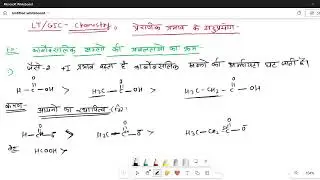 Microsoft Whiteboard
Untitled whiteboard
LT/GIC - Chemistry, प्रेरणिक प्रभाव के अनुप्रयोग
कार्बोक्सिलिक अम्लों की अम्लता का क्रम
1) जैसे-2 +I प्रभाव बढ़ता है कार्बोक्सिलिक अम्लों की अम्लीयता घट जाती है।
H-C-OH > H₃C-C-OH > H₃C-CH₂-C-OH
O O O
कारण- आयनों का स्थायित्व
H-C-O > H₃C-C-O > H₃C-CH₂-C-O
O O O
HCOOH >